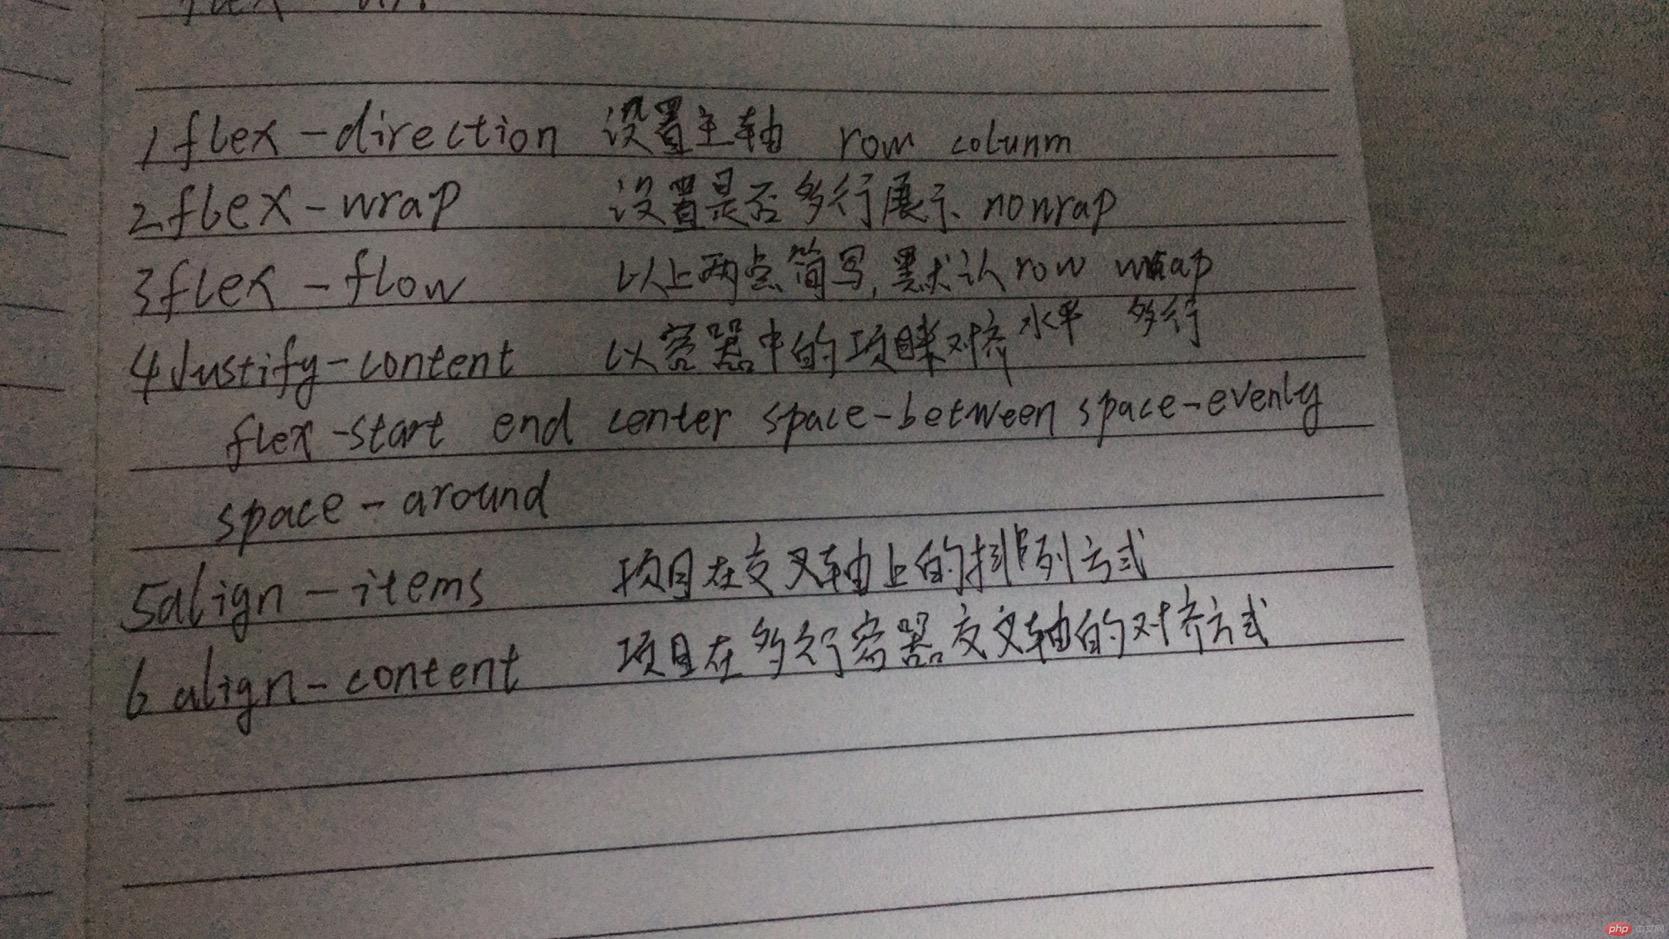 1 flex-direction 设置主轴 row colunm
2.flex-wrap 设置是否多行展示. nonrap
3 flex-flow 以上两点简写,默认 row wrap
4 Justify-content 以容器中的项目对齐 水平 多行
flex-start end center space-between space-evenly
space-around
5 align-items 项目在交叉轴上的排列方式
6 align-content 项目在多行容器交叉轴的对齐方式
php 中文网